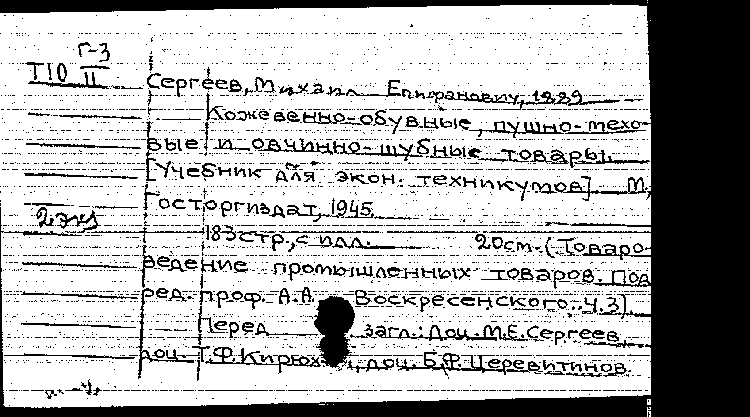 Г-3
Т10 II
Сергеев, Михаил Епифанович, 1889
Кожевенно-обувные, пушно-мехо-
вые и овчинно-шубные товары.
[Учебник для экон. техникумов] М,
Госторгиздат, 1945.
2 экз
183 стр., с илл. 20см. (Товаро-
ведение промышленных товаров. Под
ред. проф. А.А. Воскресенского, Ч.3).
Перед загл.: Доц. М.Е. Сергеев,
доц. Т.Ф. доц. Б.Ф. Церевитинов.